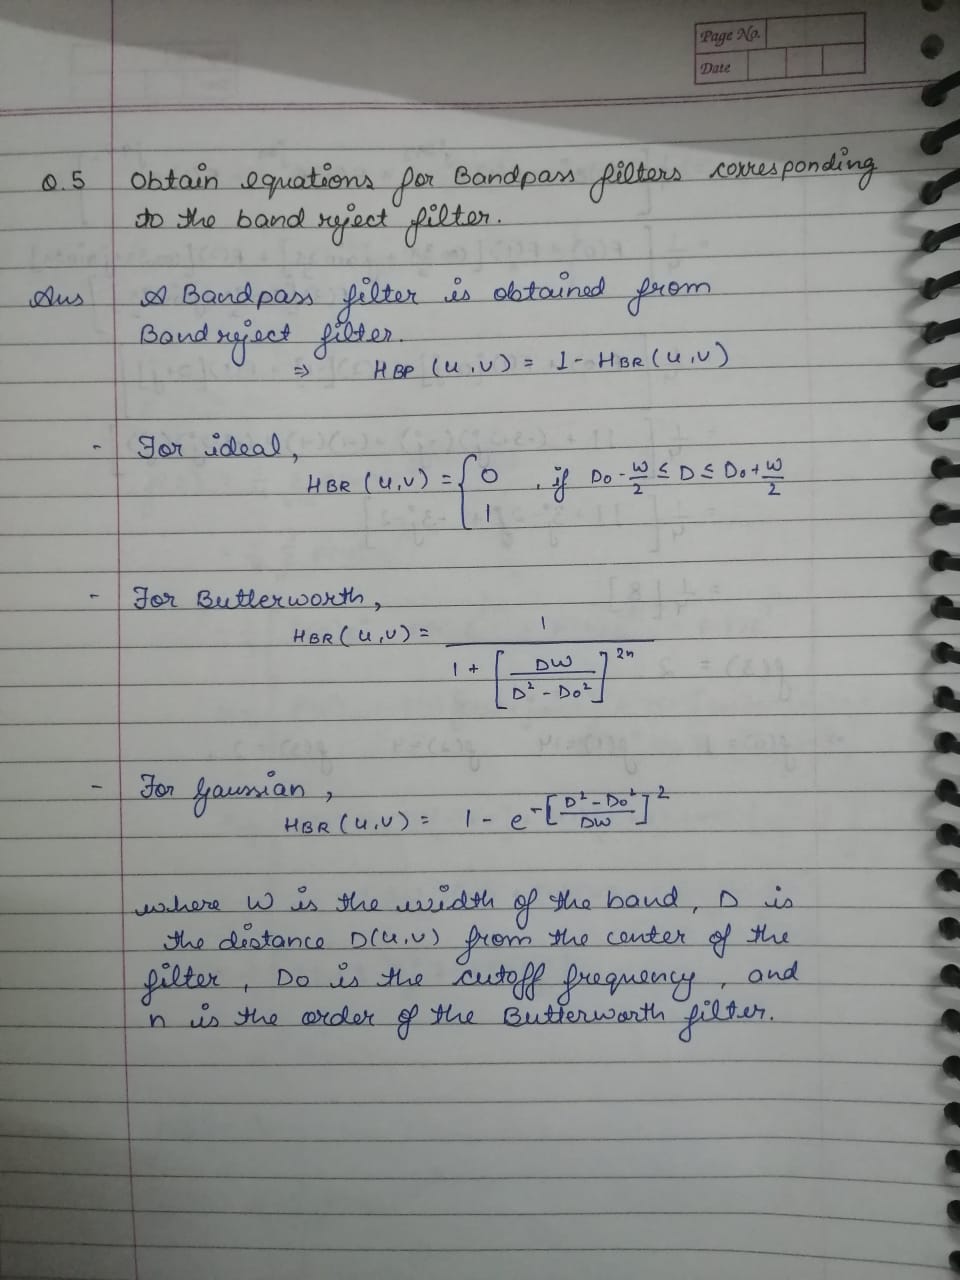 Page No.
Date
Q.5 Obtain equations for Bandpass filters corresponding
to the band reject filter.
Ans A Bandpass filter is obtained from
Band reject filter.
⇒ HBP (u,v) = 1 - HBR (u,v)
- For ideal,
HBR (u,v) = { 0 , if D0 - W/2 ≤ D ≤ D0 + W/2
1
- For Butterworth,
HBR (u,v) = 1 / (1 + [DW / (D² - D0²)]^2n)
- For Gaussian,
HBR (u,v) = 1 - e^-[(D² - D0²) / DW]²
where W is the width of the band, D is
the distance D(u,v) from the center of the
filter, D0 is the cutoff frequency, and
n is the order of the Butterworth filter.